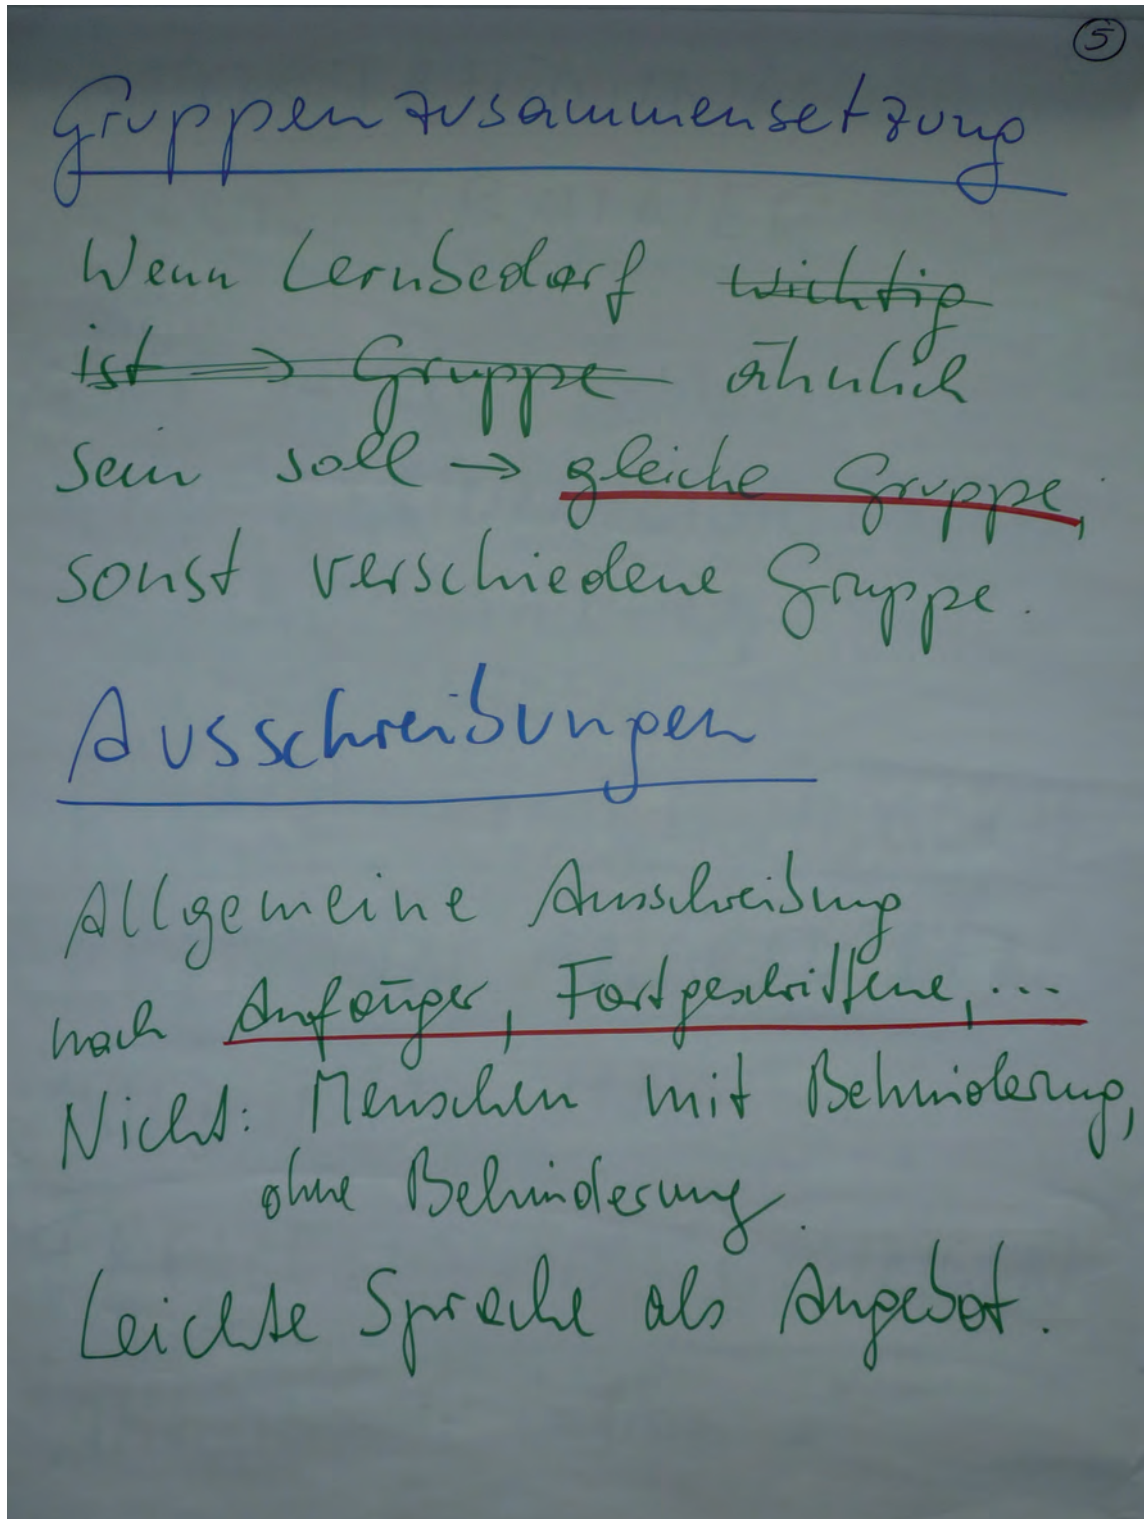 5
Gruppenzusammensetzung
Wenn Lernbedarf wichtig
ist → Gruppe ähnlich
sein soll → gleiche Gruppe,
sonst verschiedene Gruppe.
Ausschreibungen
Allgemeine Ausschreibung
nach Anfänger, Fortgeschrittene, ...
Nicht: Menschen mit Behinderung,
ohne Behinderung.
Leichte Sprache als Angebot.